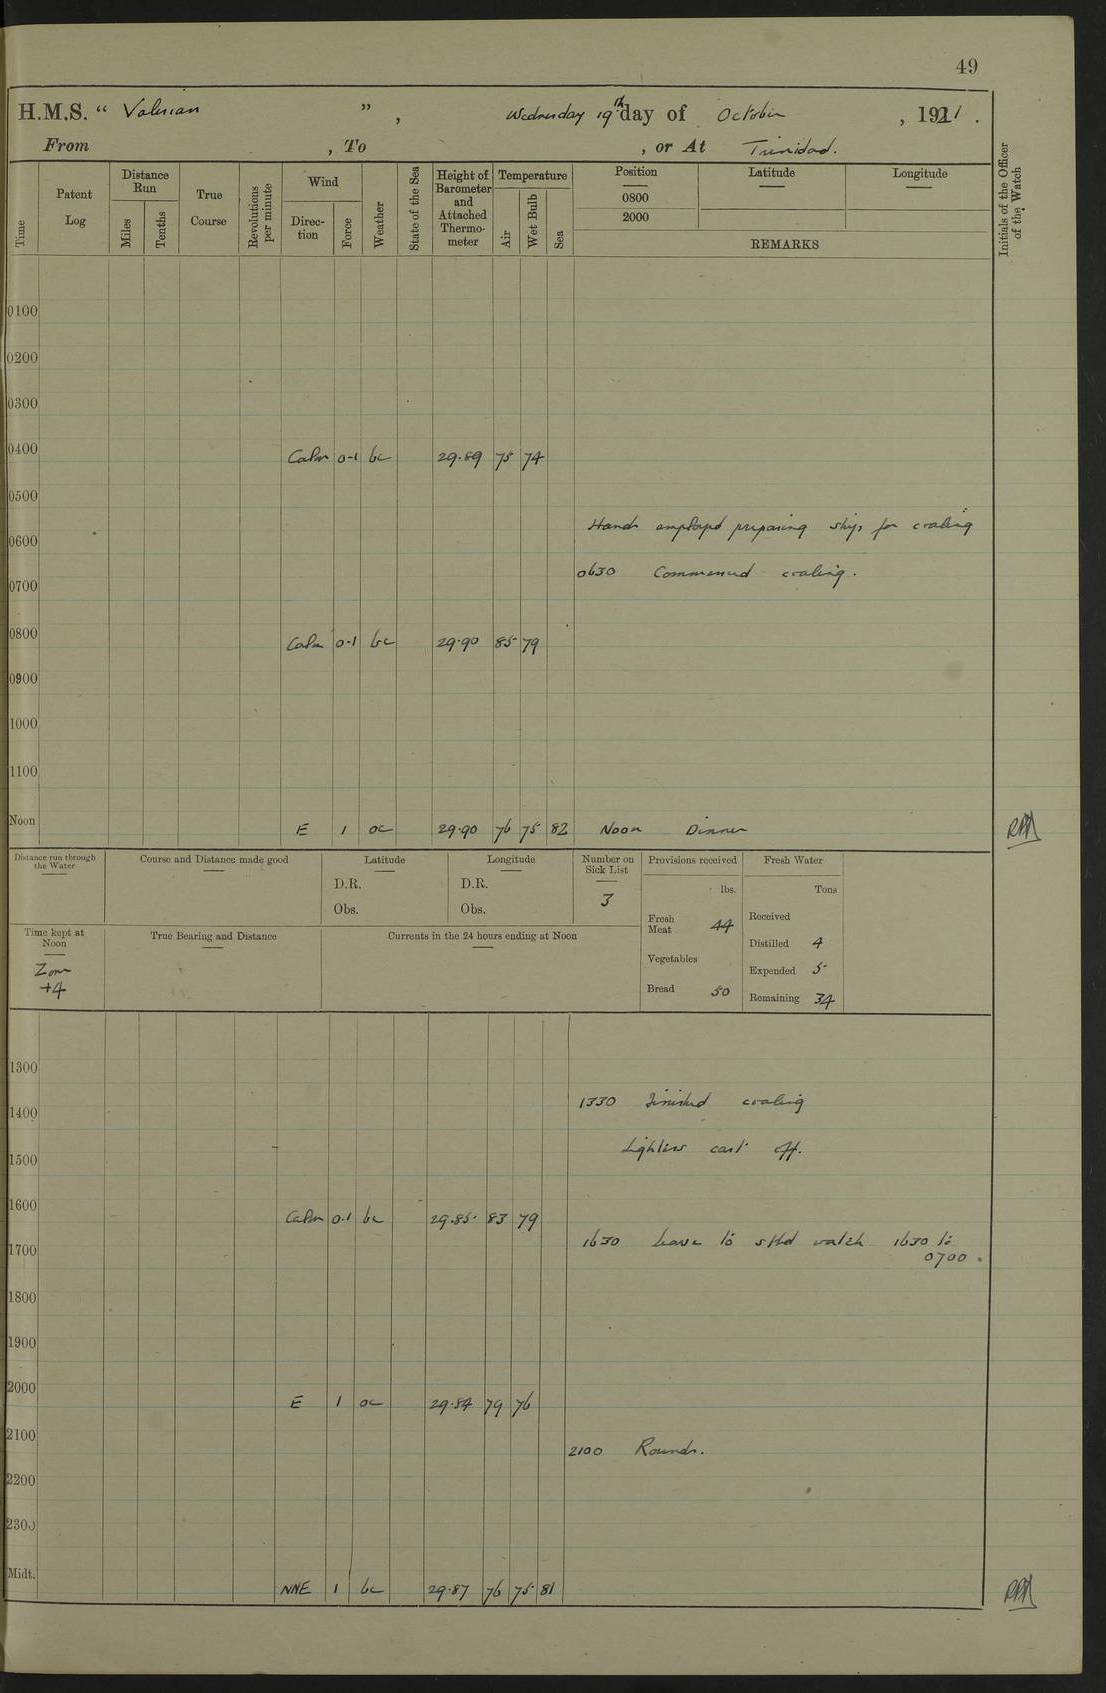 49
H.M.S. “ Valerian ” , Wednesday 19th day of October , 1921 .
From , To , or At Trinidad.
Time
Patent Log
Distance Run
Miles
Tenths
True Course
Revolutions per minute
Wind
Direc- tion
Force
Weather
State of the Sea
Height of Barometer and Attached Thermo- meter
Temperature
Air
Wet Bulb
Sea
Position
0800
2000
Latitude
Longitude
REMARKS
Initials of the Officer of the Watch
0100
0200
0300
0400 Calm 0-1 bc 29.89 75 74
0500
Hands employed preparing ship for coaling
0600
0630 Commenced coaling.
0700
0800 Calm 0-1 bc 29.90 85 79
0900
1000
1100
Noon E 1 oc 29.90 76 75 82 Noon Dinner
Distance run through the Water
Course and Distance made good
Latitude
D.R.
Obs.
Longitude
D.R.
Obs.
Number on Sick List
3
Provisions received
lbs.
Fresh Meat 44
Vegetables
Bread 50
Fresh Water
Tons
Received
Distilled 4
Expended 5
Remaining 34
Time kept at Noon
Zone +4
True Bearing and Distance
Currents in the 24 hours ending at Noon
1300
1330 Finished coaling
1400
Lighters cast off.
1500
1600 Calm 0.1 bc 29.85 83 79
1630 Leave to stbd watch 1630 to
1700 0700.
1800
1900
2000 E 1 oc 29.84 79 76
2100
2100 Rounds.
2200
2300
Midt. NNE 1 bc 29.87 76 75 81